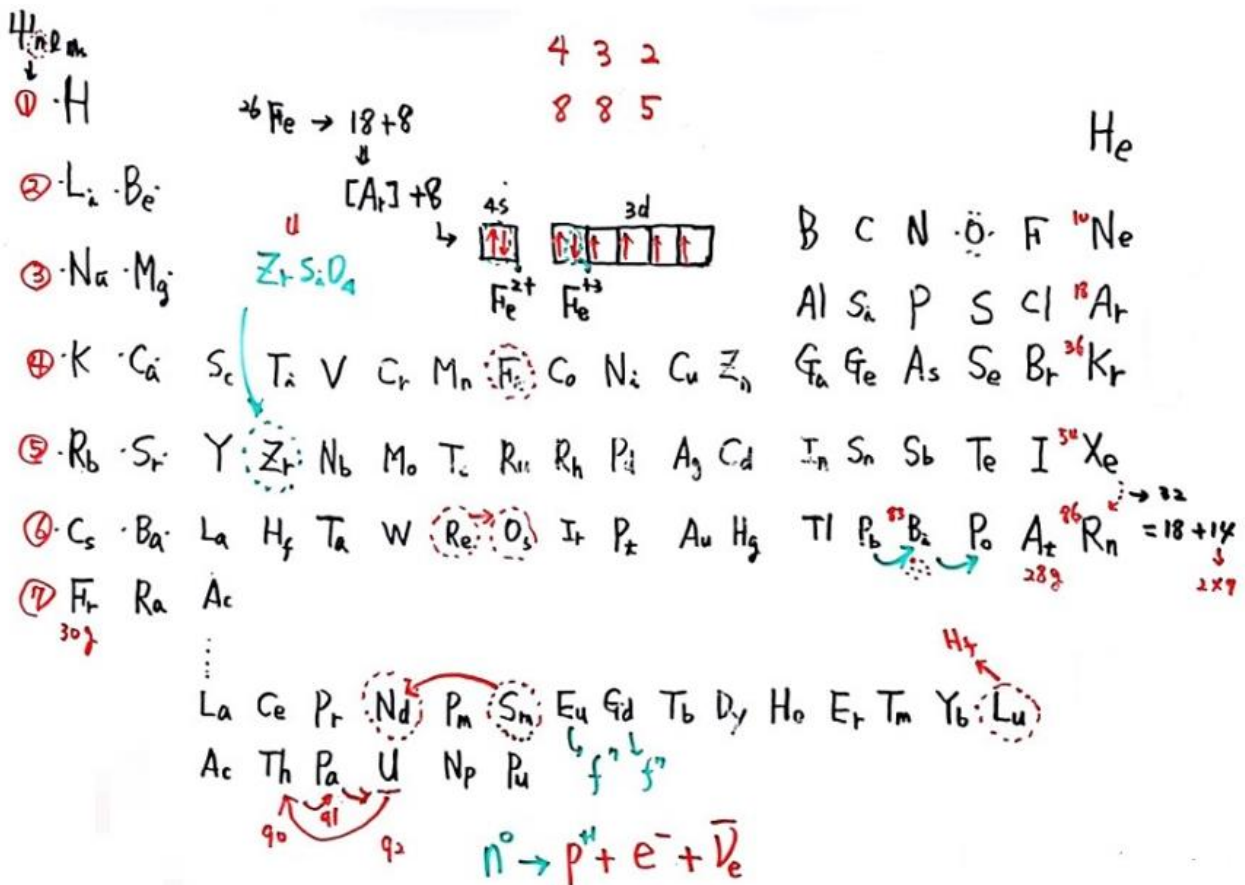 Ψn l m
4 3 2
8 8 5
① ·H
²⁶Fe → 18+8
He
[Ar] +8
② ·Li ·Be·
4s
3d
B C N ·Ö· F ¹⁰Ne
U
ZrSiO4
③ ·Na ·Mg·
Fe²⁺ Fe⁺³
Al Si P S Cl ¹⁸Ar
④ ·K ·Ca Sc Ti V Cr Mn Fe Co Ni Cu Zn Ga Ge As Se Br ³⁶Kr
⑤ ·Rb ·Sr· Y Zr Nb Mo Tc Ru Rh Pd Ag Cd In Sn Sb Te I ⁵⁴Xe
→ 32
⑥ ·Cs ·Ba· La Hf Ta W Re → Os Ir Pt Au Hg Tl Pb ⁸³Bi Po At ⁸⁶Rn = 18 + 14
28g
2×7
⑦ Fr Ra Ac
30g
Hf
La Ce Pr Nd Pm Sm Eu Gd Tb Dy Ho Er Tm Yb Lu
Ac Th Pa U Np Pu f⁷ f⁷
90 91 92
n⁰ → p⁺¹ + e⁻ + ν̄e